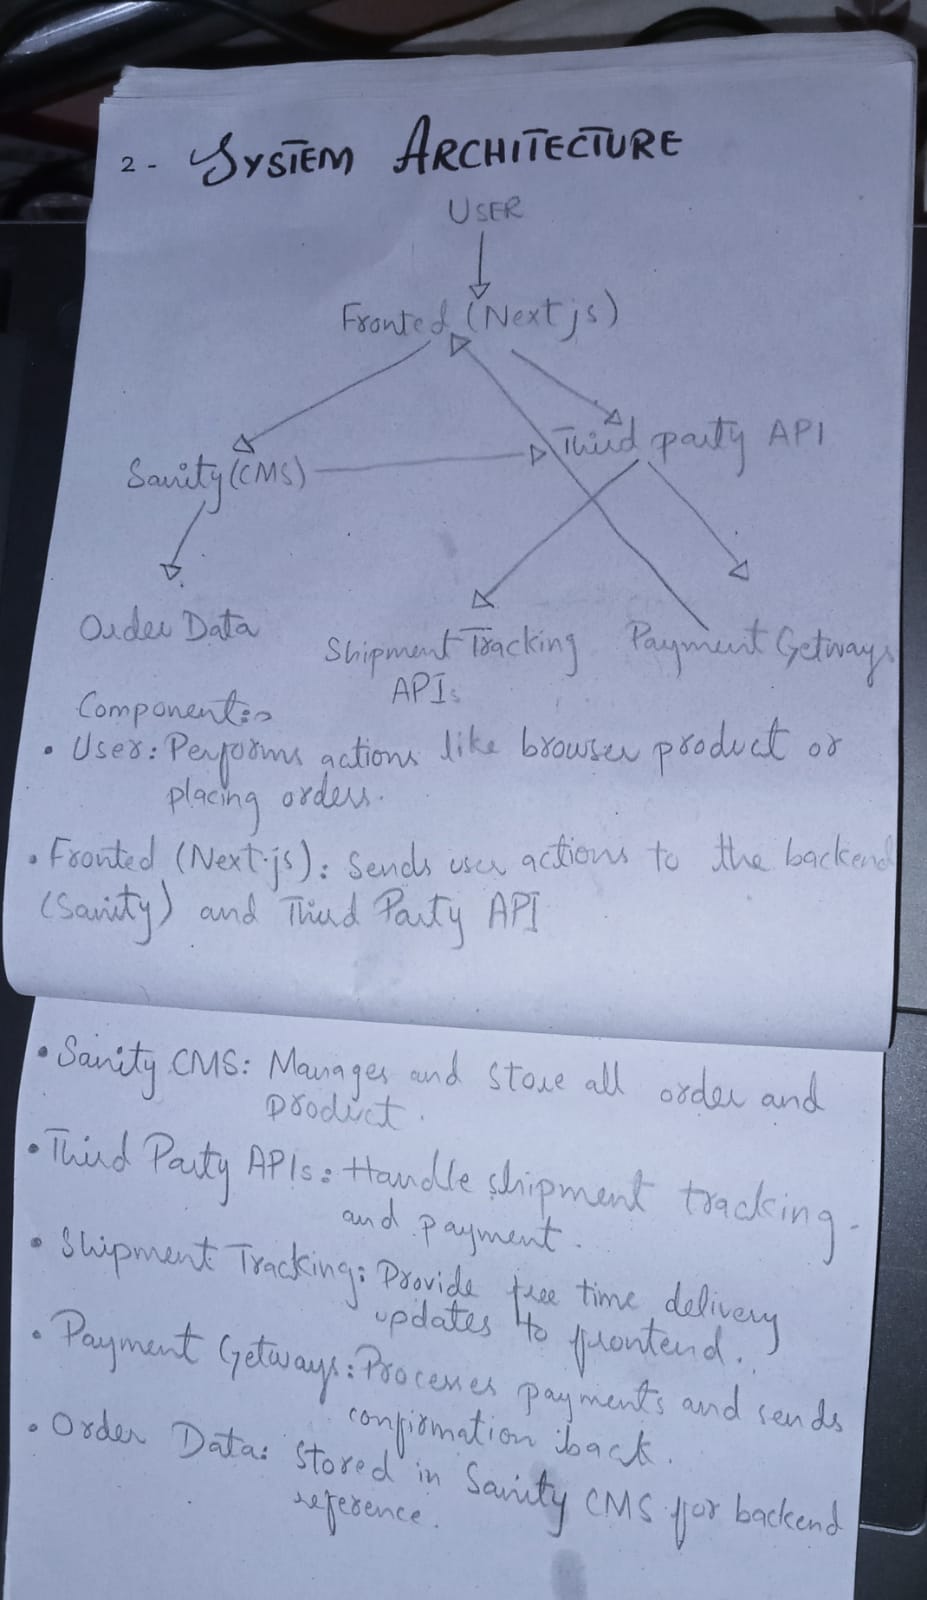 2 - SYSTEM ARCHITECTURE
USER
Fronted (Next js)
Third party API
Sanity (CMS)
Order Data
Shipment Tracking
APIs
Payment Getways
Component:-
• User: Performs actions like browser product or
placing orders.
• Fronted (Next.js): Sends user actions to the backend
(Sanity) and Third Party API
• Sanity CMS: Manages and store all order and
product.
• Third Party APIs: Handle shipment tracking
and payment.
• Shipment Tracking: Provide free time delivery
updates to frontend.
• Payment Getways: Processes payments and sends
confirmation back.
• Order Data: Stored in Sanity CMS for backend
reference.